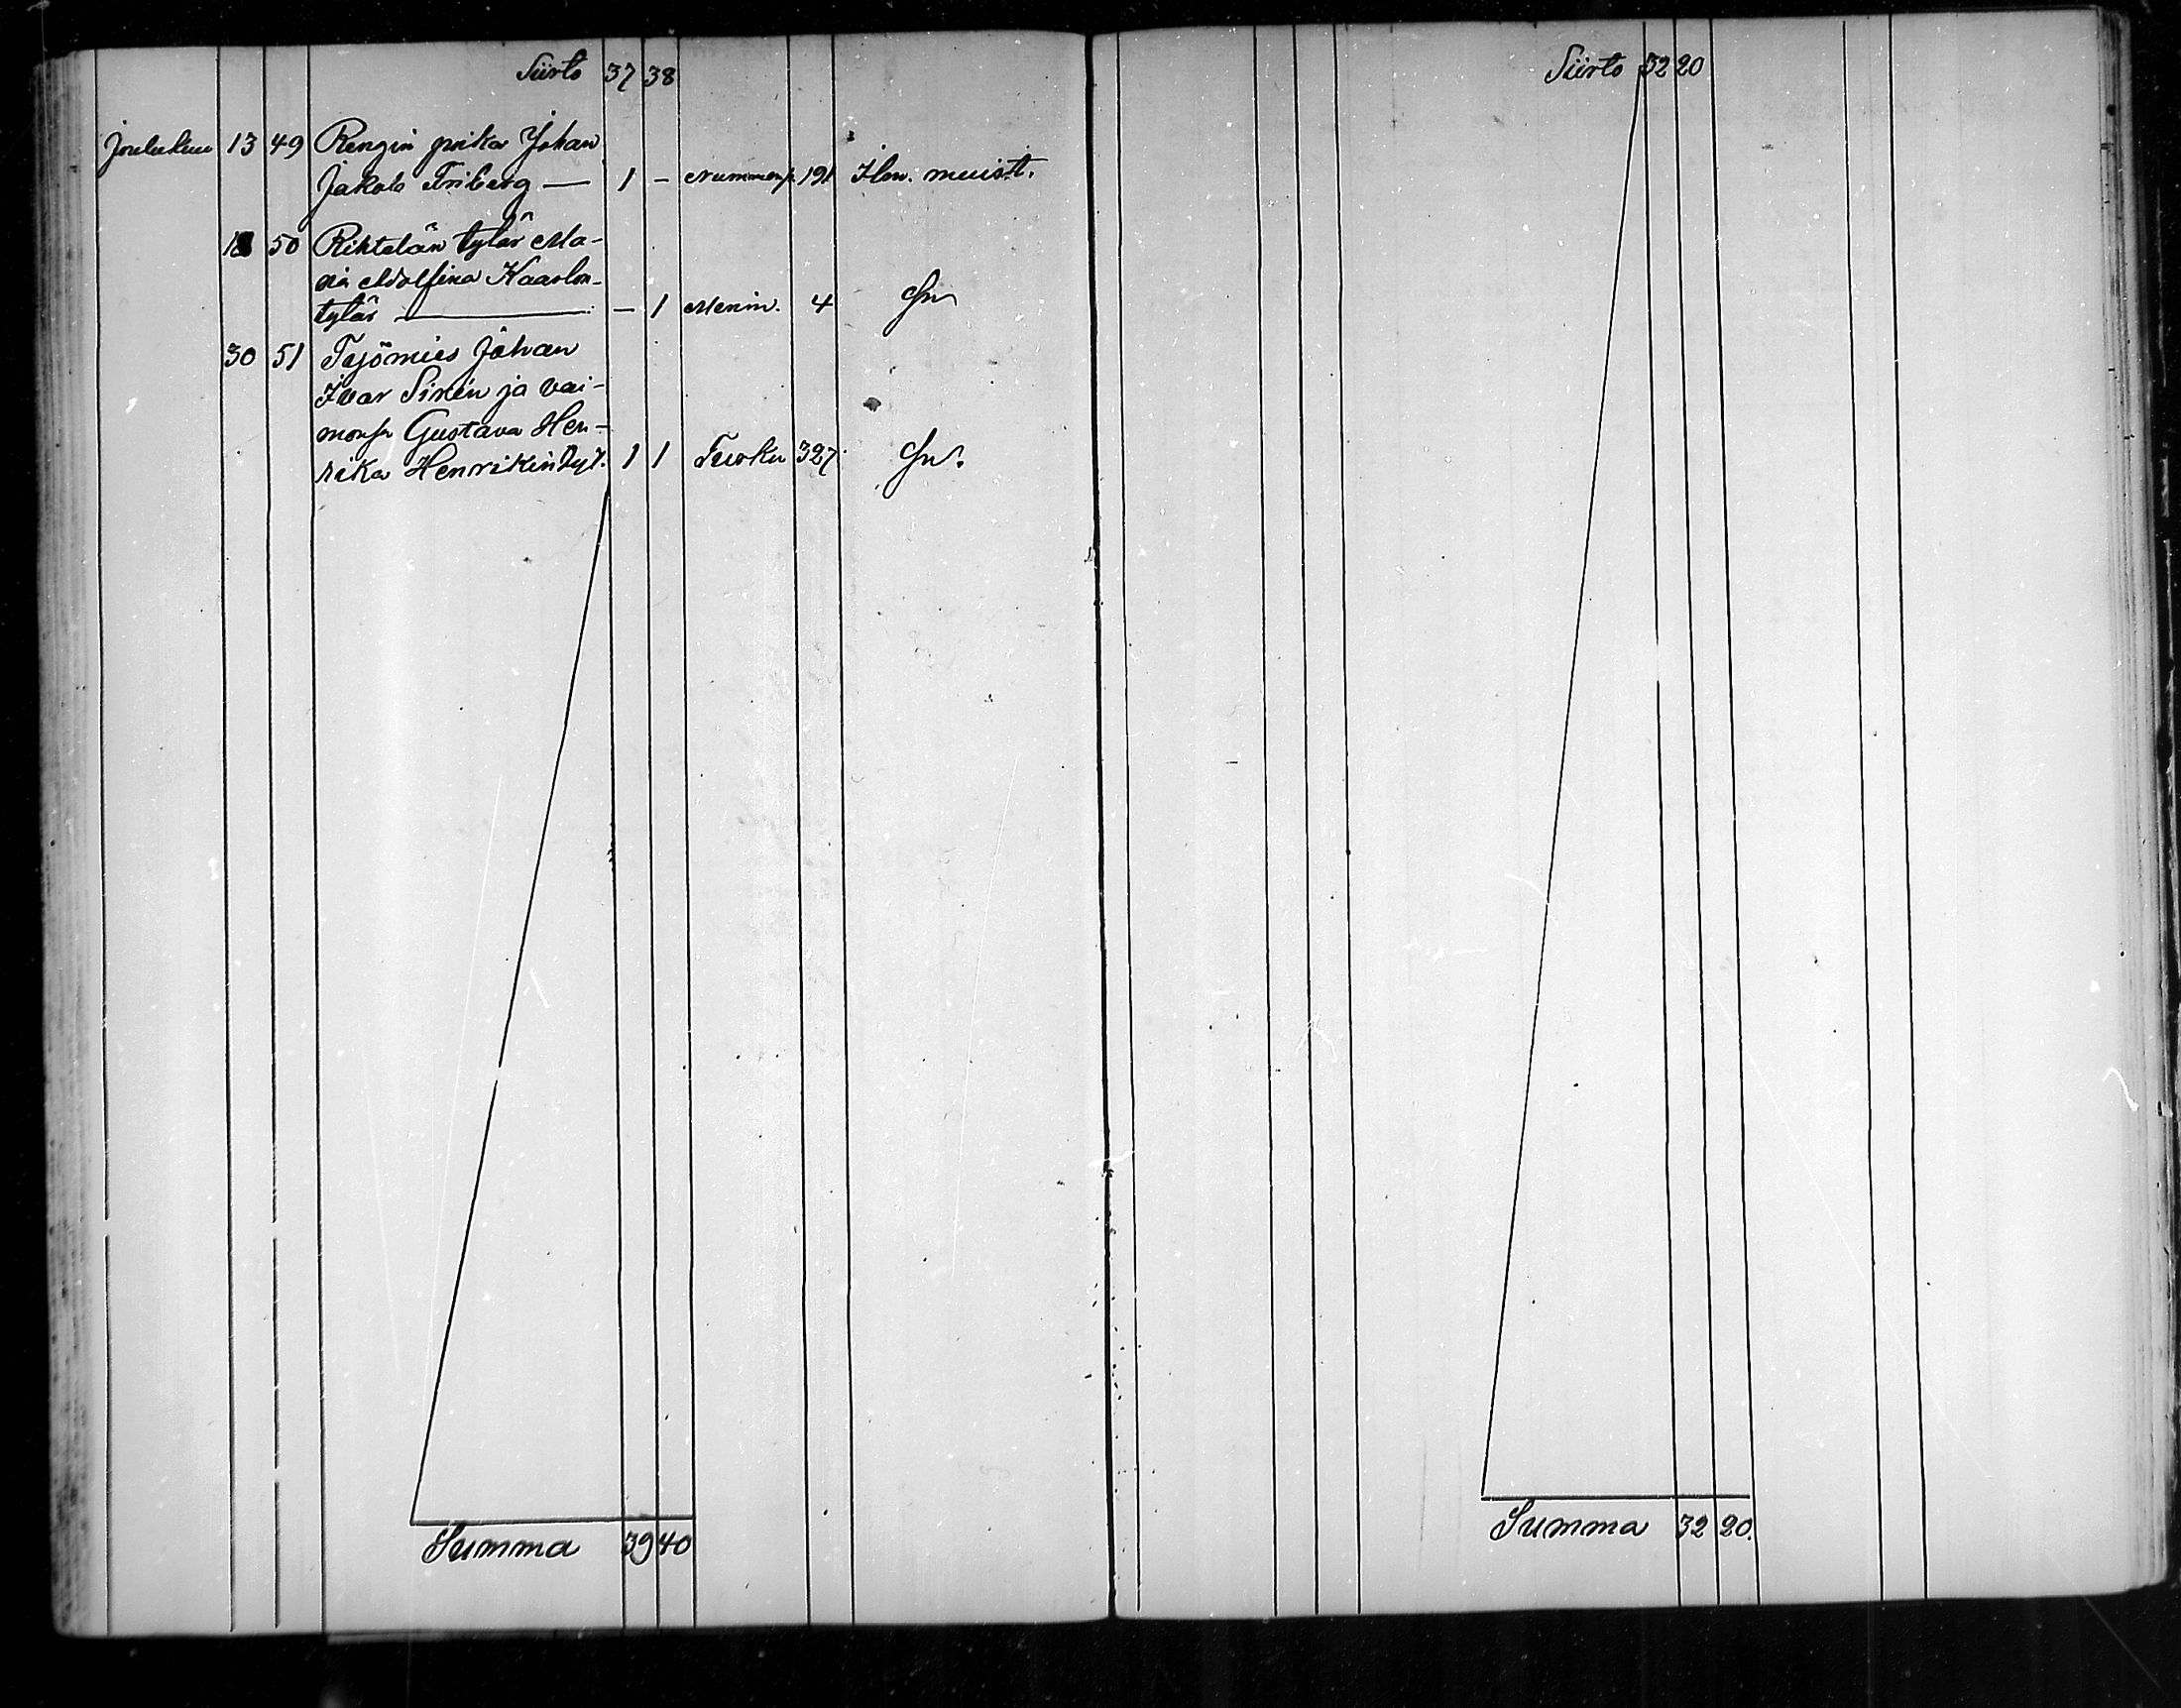 Siirto 37 38
Joulukuu 13 49 Rengin poika Johan
Jakob Friberg — 1 – Nummenp. 191 Ilm. muist.
50 Rihtelän tytär Ma-
ria Adolfina Kaarlon-
tytär — – 1 Merim. 4
30 51 Työmies Johan
Ivar Sirén ja vai-
monsa Gustava Hen-
rika Henrikintyt. 1 1 Turku 327
Summa 39 40
Siirto 32 20
Summa 32 20.